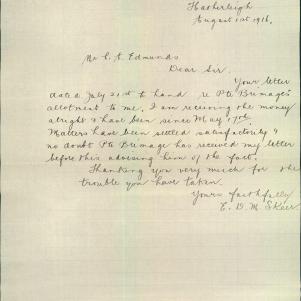 Hatherleigh
August 1st 1916.
Mr C. A. Edmunds
Dear Sir.
Your letter
dated July 21st to hand re Pte Brimage's
allotment to me. I am receiving the money
alright & have been since May 17th.
Matters have been settled satisfactory &
no doubt Pte Brimage has received my letter
before this advising him of the fact.
Thanking you very much for the
trouble you have taken
Yours faithfully
E. D. M. Skeer